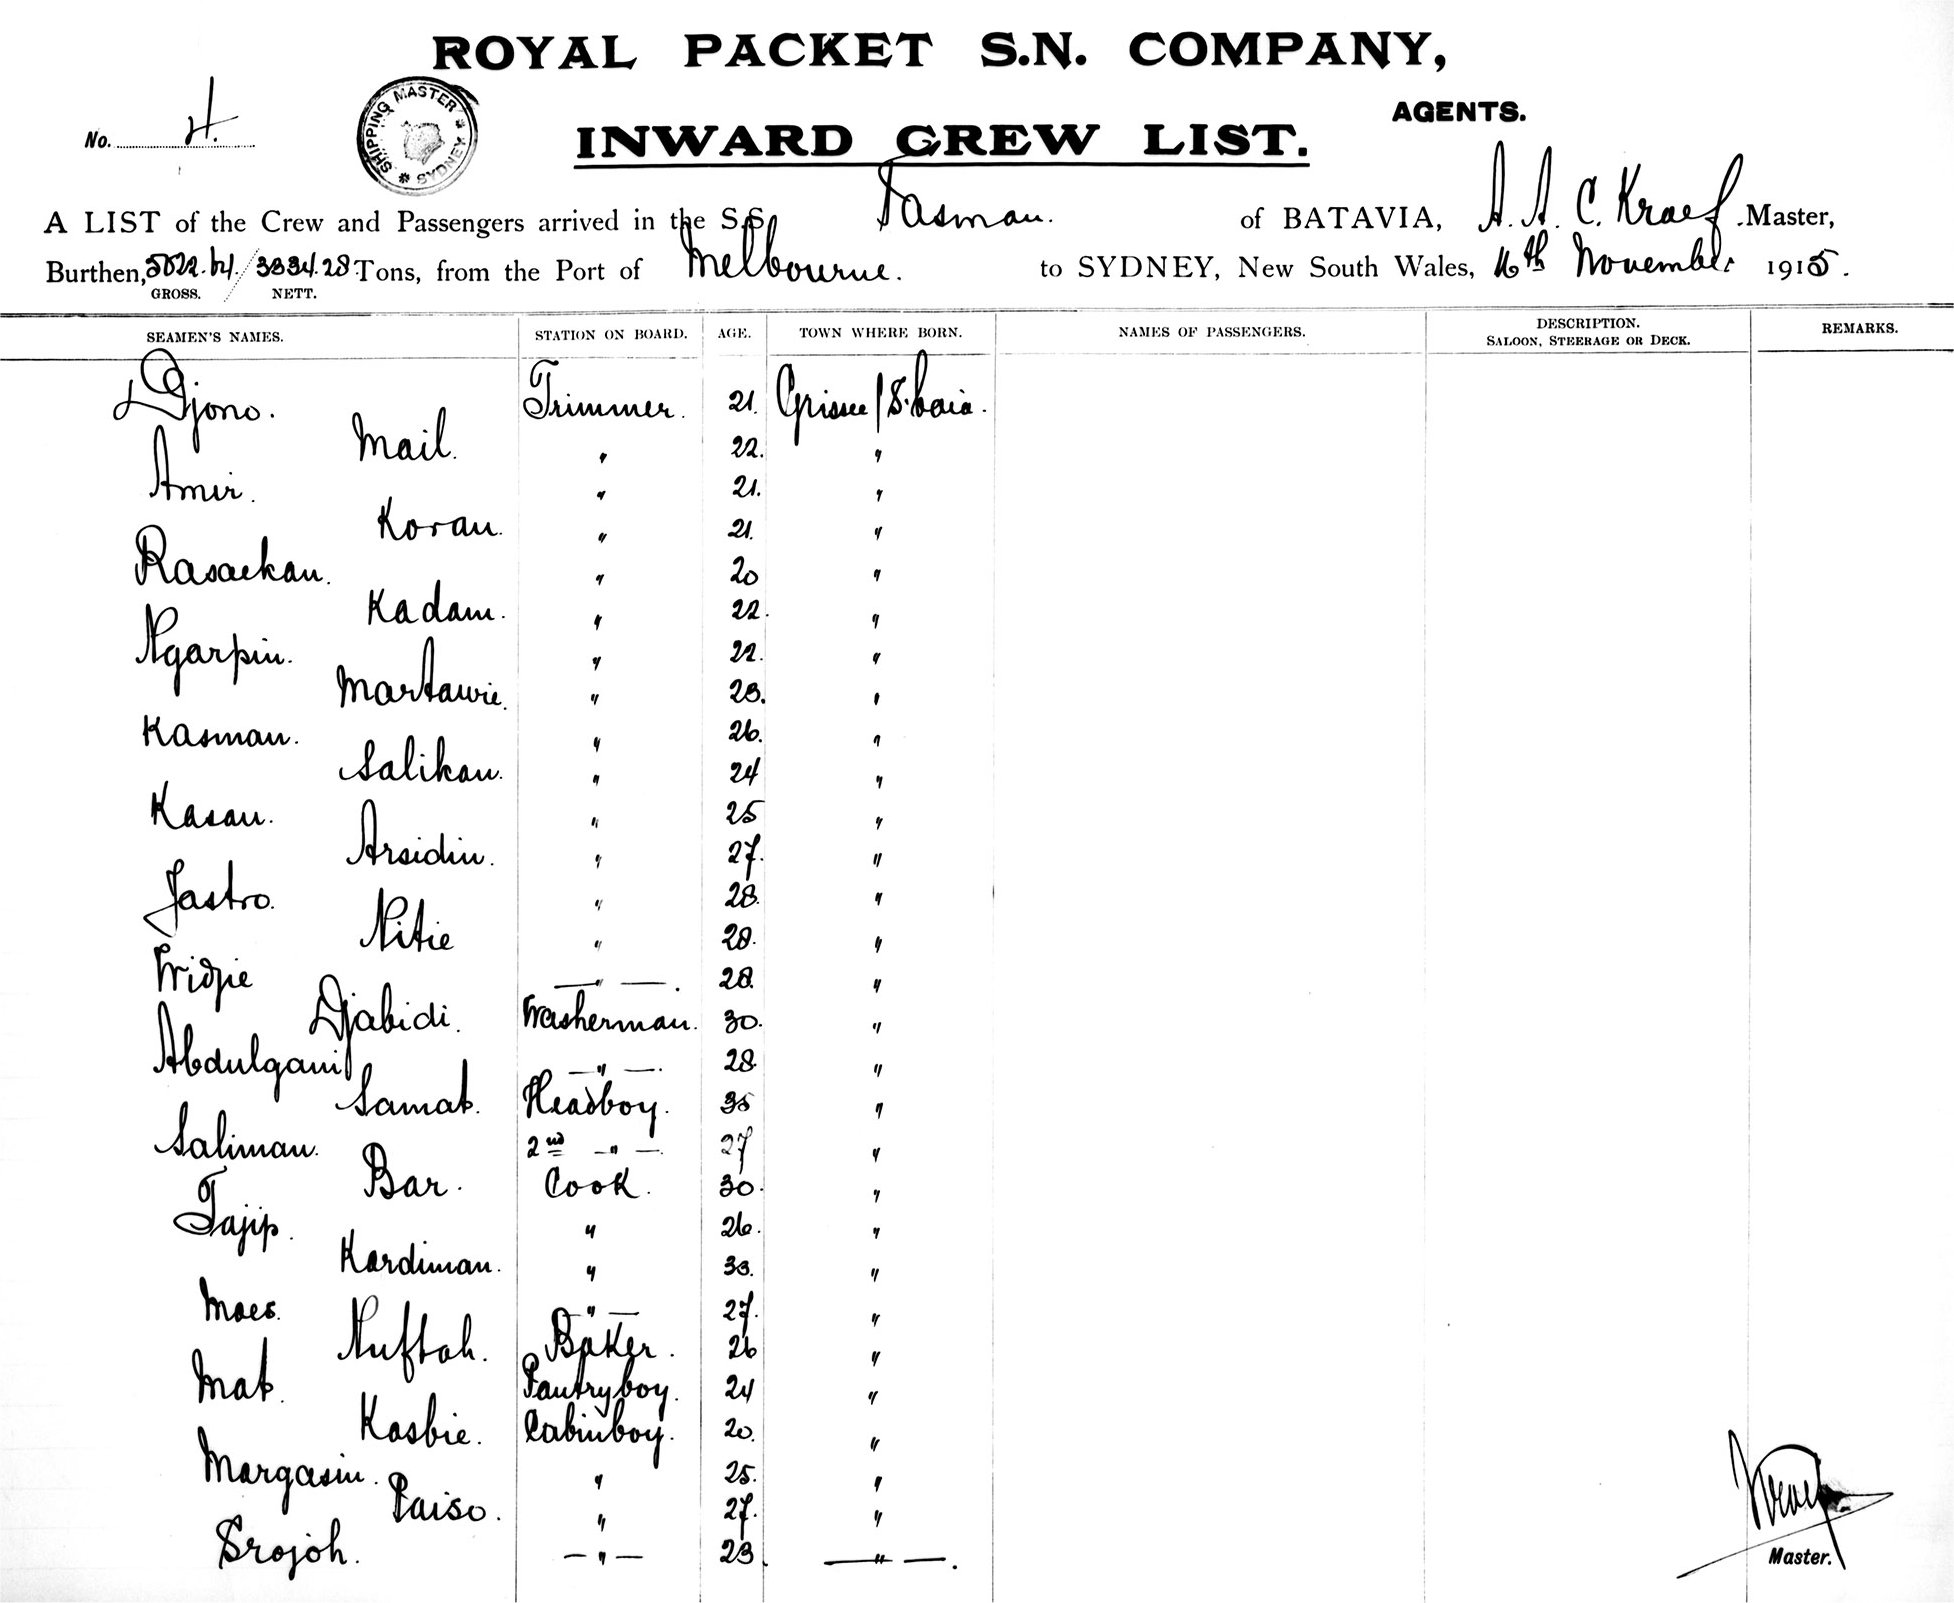 ROYAL PACKET S.N. COMPANY,
AGENTS.
No. 4.
SHIPPING MASTER * SYDNEY *
INWARD CREW LIST.
A LIST of the Crew and Passengers arrived in the S.S. Tasman. of BATAVIA, A. A. C. Kraef. Master,
Burthen, 5022.64. / 3334.28 Tons, from the Port of Melbourne. to SYDNEY, New South Wales, 16th November 1915.
GROSS. NETT.
SEAMEN'S NAMES. STATION ON BOARD. AGE. TOWN WHERE BORN. NAMES OF PASSENGERS. DESCRIPTION. SALOON, STEERAGE OR DECK. REMARKS.
Djono. Trimmer. 21. Grissee / S. baia.
Mail. " 22. "
Amir. " 21. "
Koran. " 21. "
Rasaekan. " 20 "
Kadam. " 22. "
Ngarpin. " 22. "
Martawie. " 23. "
Kasman. " 26. "
Salikan. " 24 "
Kasan. " 25 "
Arsidin. " 27. "
Jastro. " 28. "
Nitie " 28. "
Widjie — " —. 28. "
Djabidi. Washerman. 30. "
Abdulgani — " —. 28. "
Samat. Headboy. 35 "
Saliman. 2nd — " —. 27 "
Bar. Cook. 30. "
Tajip. " 26. "
Kardiman. " 33. "
Moes. — " — 27. "
Nuftah. Baker. 26 "
Mat. Pantryboy. 24 "
Kasbie. Cabinboy. 20. "
Margasin. " 25. "
Paiso. " 27. "
Srojoh. — " — 23. — " —.
Kraef
Master.